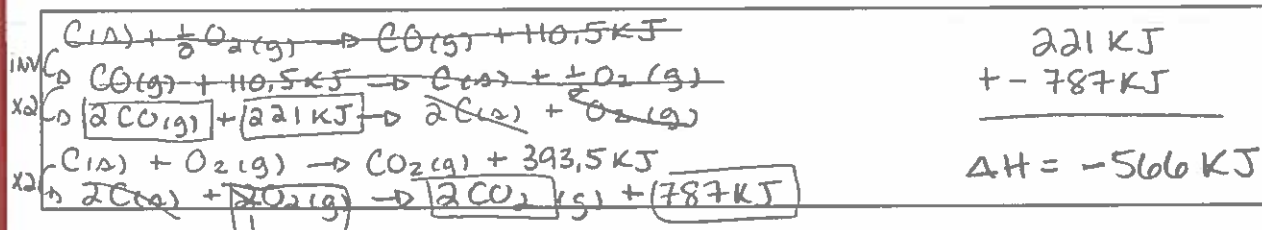 C(s) + ½ O₂(g) → CO(g) + 110,5 KJ
INV CO(g) + 110,5 KJ → C(s) + ½ O₂(g)
x2 2CO(g) + 221 KJ → 2C(s) + O₂(g)
C(s) + O₂(g) → CO₂(g) + 393,5 KJ
x2 2C(s) + 2O₂(g) → 2CO₂(g) + 787 KJ
1
221 KJ
+ - 787 KJ
ΔH = - 566 KJ